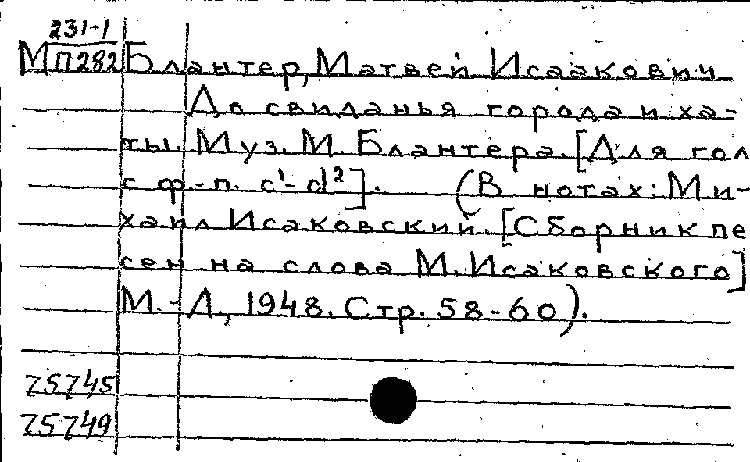 231-1
М П282 Блантер, Матвей Исаакович
До свиданья города и ха-
ты. Муз. М. Блантера. [Для гол
с ф.-п. c¹-d²]. (В нотах: Ми-
хаил Исаковский. [Сборник пе
сен на слова М. Исаковского]
М.-Л., 1948. Стр. 58-60).
75745
75749